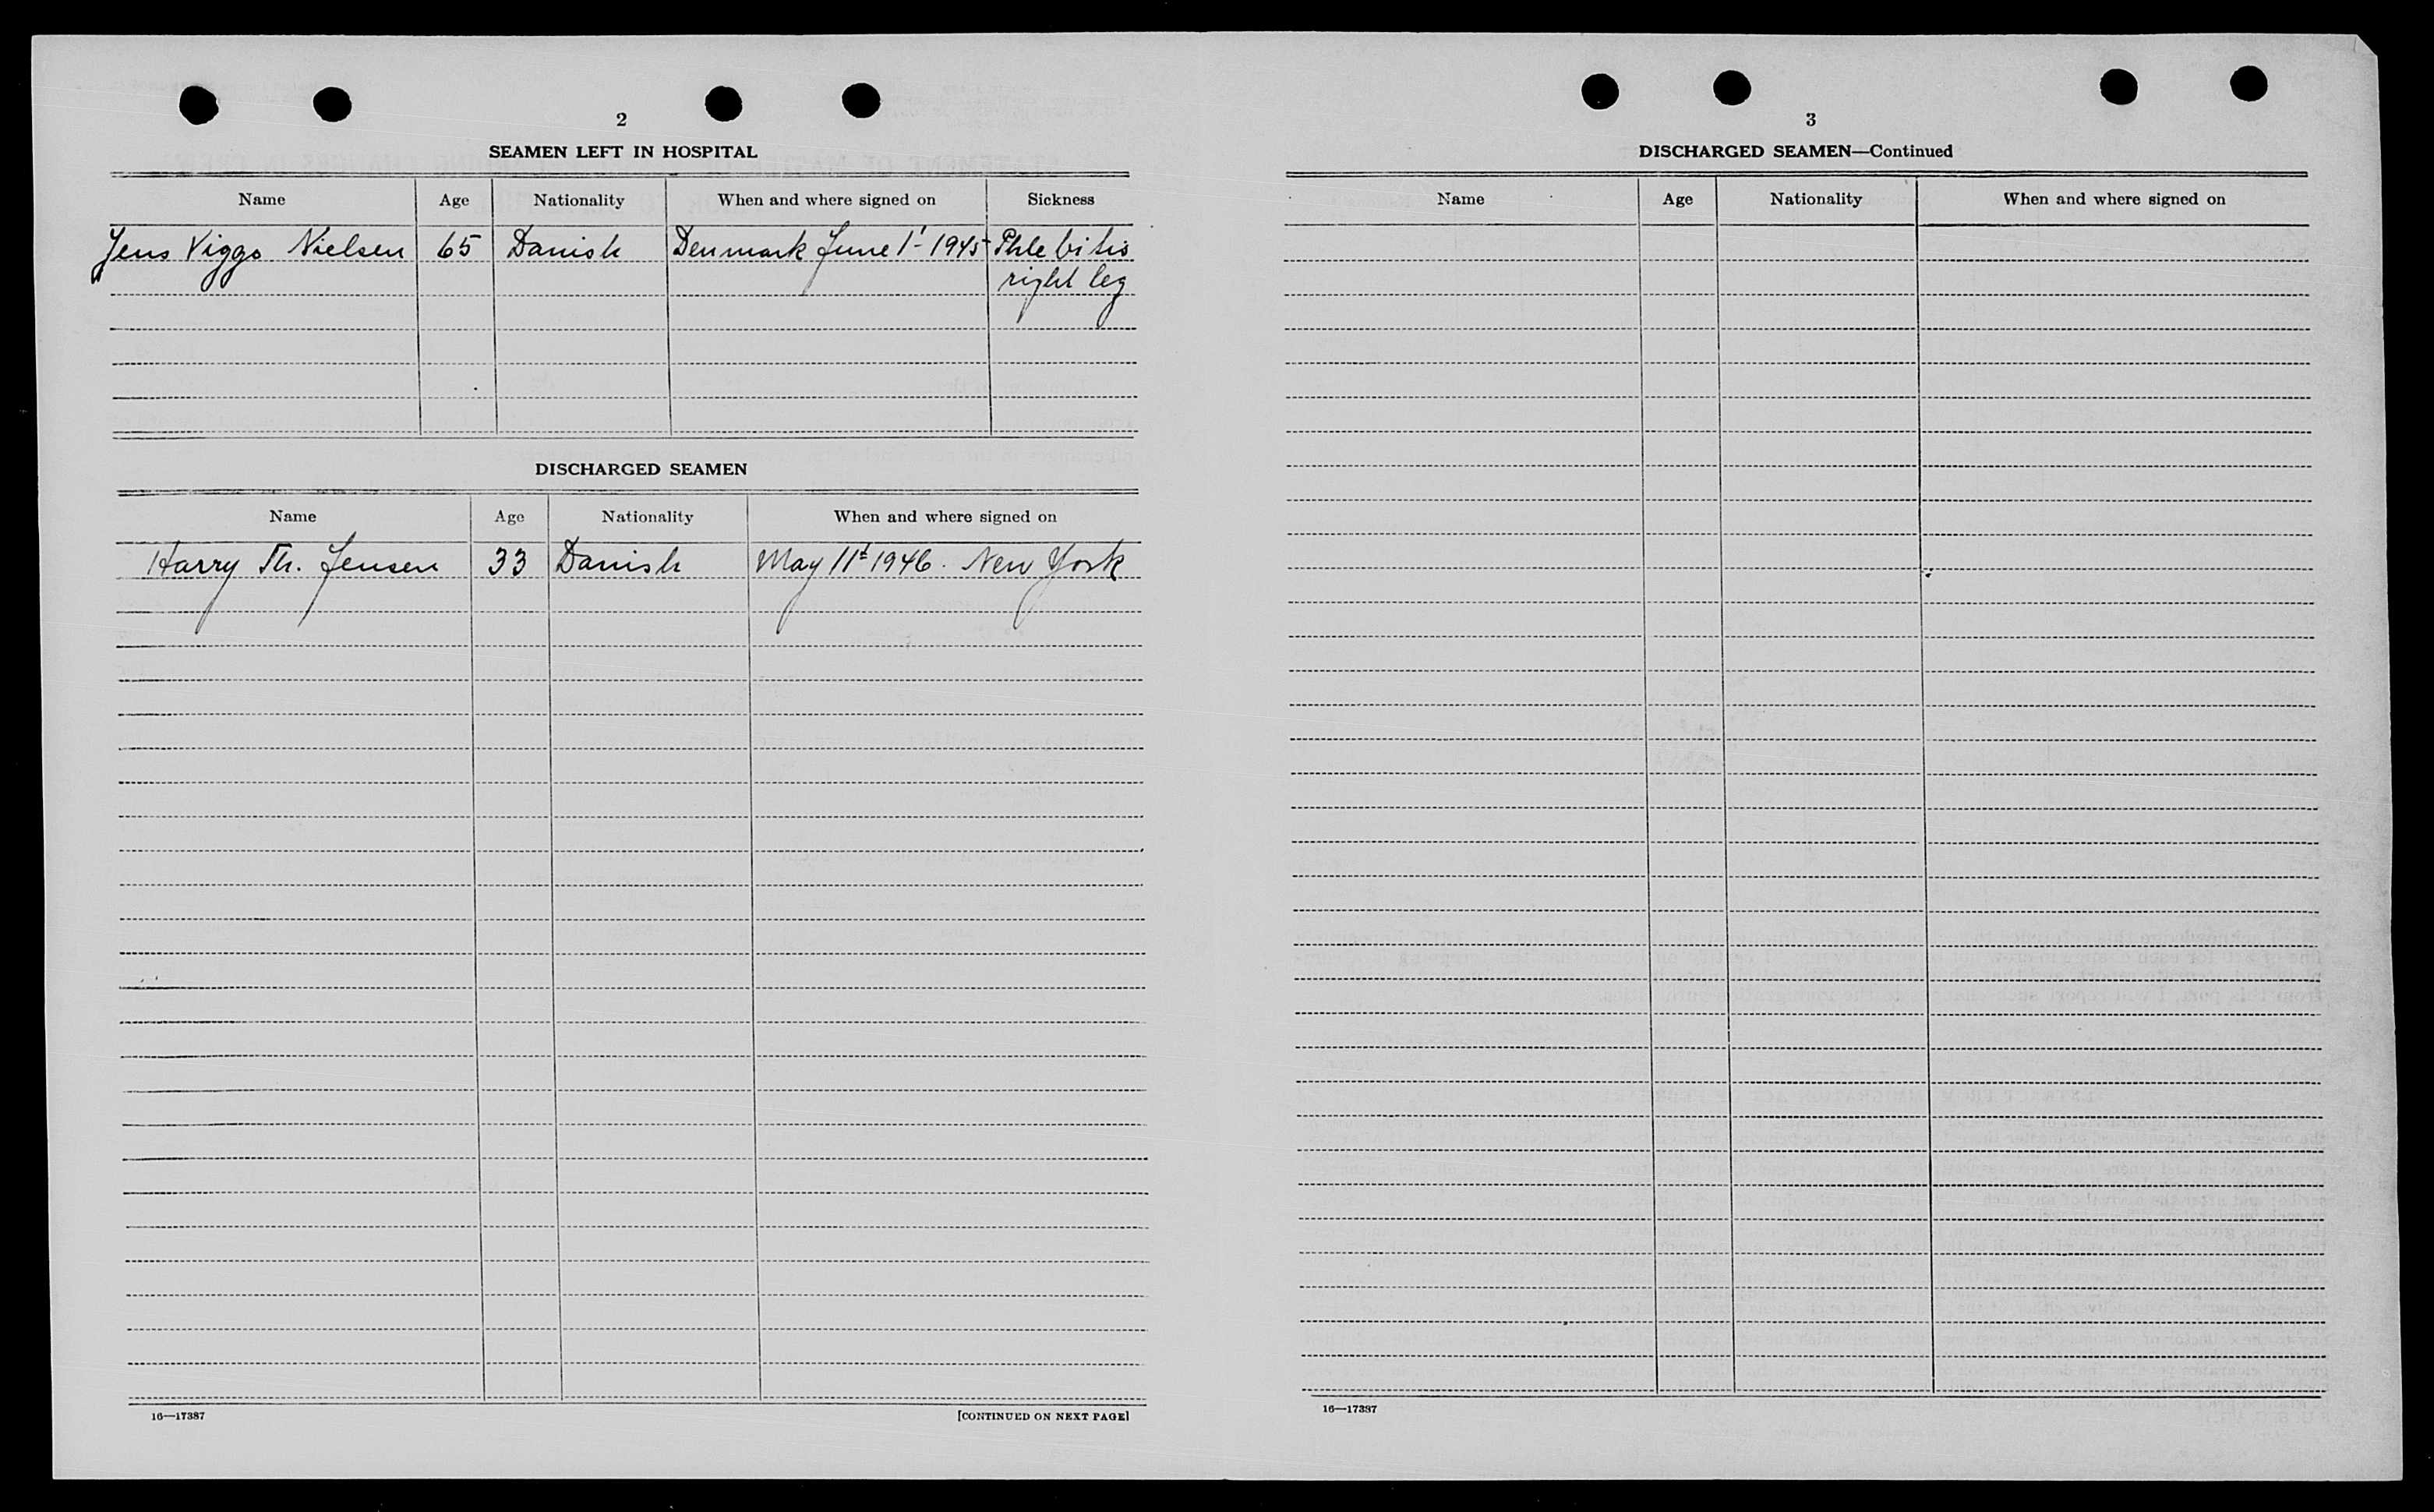 2
SEAMEN LEFT IN HOSPITAL
Name Age Nationality When and where signed on Sickness
Jens Viggo Nielsen 65 Danish Denmark June 1' 1945 Phlebitis
right leg
DISCHARGED SEAMEN
Name Age Nationality When and where signed on
Harry Th. Jensen 33 Danish May 11t 1946. New York
16—17387
[CONTINUED ON NEXT PAGE]
3
DISCHARGED SEAMEN—Continued
Name Age Nationality When and where signed on
16—17387